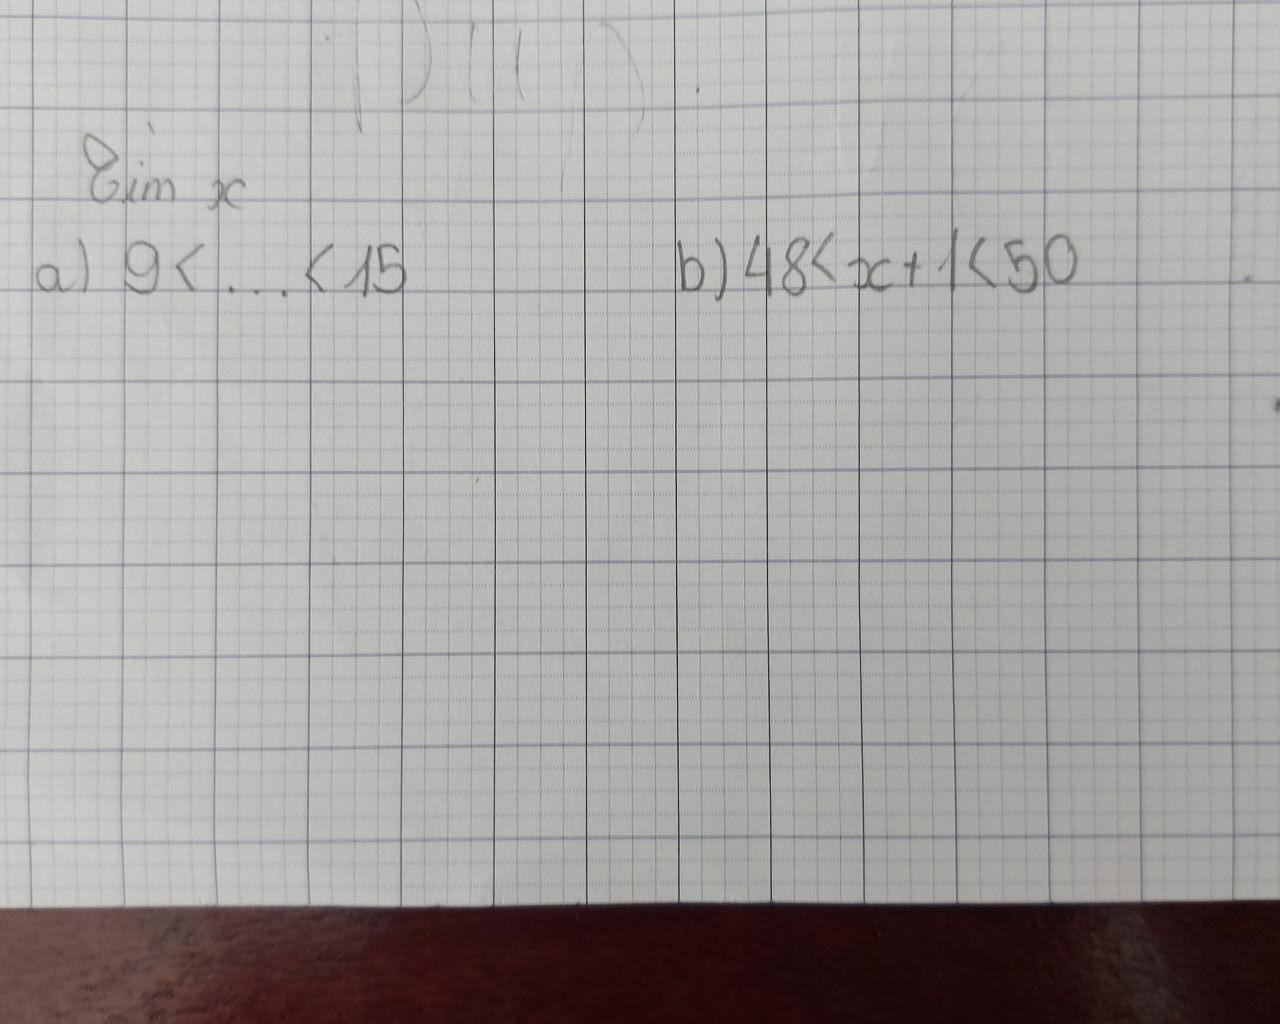 Tìm x
a) 9 < ... < 15
b) 48 < x + 1 < 50